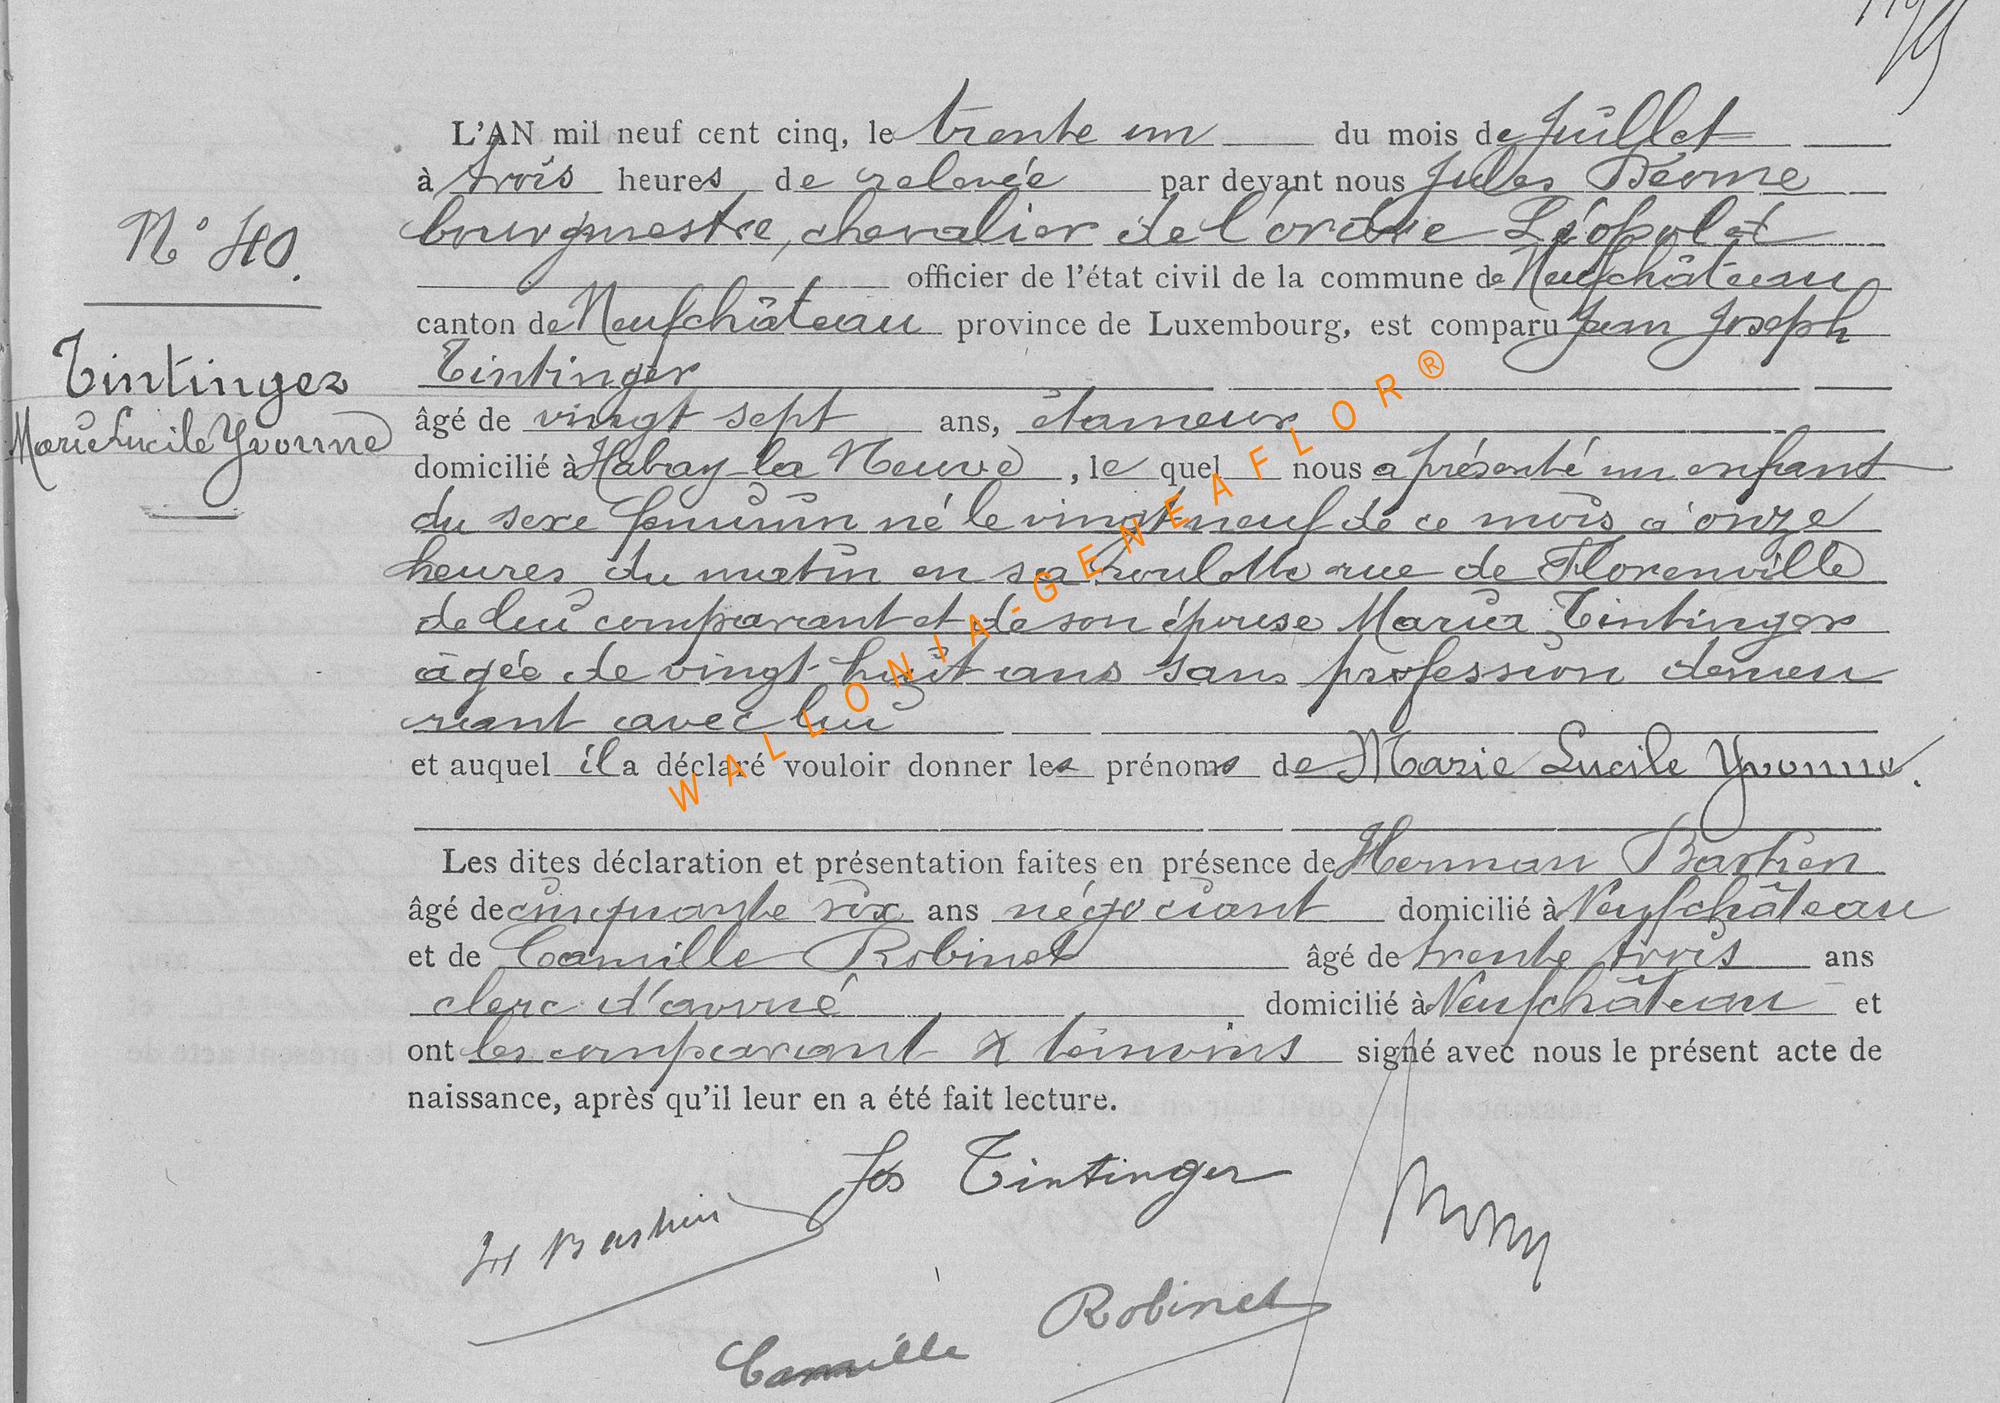 L'AN mil neuf cent cinq, le trente un du mois de Juillet
à trois heures de relevée par devant nous Jules
bourgmestre, chevalier de l'ordre Léopold
officier de l'état civil de la commune de Neufchâteau
canton de Neufchâteau province de Luxembourg, est comparu Jean Joseph
Tintinger
âgé de vingt sept ans, étameur
domicilié à Habay la Neuve, le quel nous a présenté un enfant
du sexe féminin né le vingt neuf de ce mois à onze
heures du matin en sa roulotte rue de Florenville
de lui comparant et de son épouse Maria Tintinger
âgée de vingt-huit ans sans profession demeu
rant avec lui
et auquel il a déclaré vouloir donner les prénoms de Marie Lucile Yvonne.
Les dites déclaration et présentation faites en présence de Herman Bastien
âgé de cinquante six ans négociant domicilié à Neufchâteau
et de Camille Robinet âgé de trente trois ans
clerc d'avoué domicilié à Neufchâteau et
ont les comparant & témoins signé avec nous le présent acte de
naissance, après qu'il leur en a été fait lecture.
N° 40.
Tintinger
Marie Lucile Yvonne
Jos Tintinger
H Bastien
Camille Robinet
WALLONIA-GENEAFLOR®